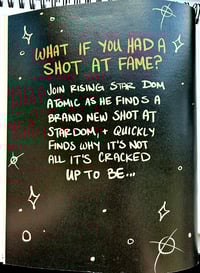 WHAT IF YOU HAD A
SHOT AT FAME?
JOIN RISING STAR DOM
ATOMIC AS HE FINDS A
BRAND NEW SHOT AT
STARDOM, + QUICKLY
FINDS WHY IT'S NOT
ALL IT'S CRACKED
UP TO BE...